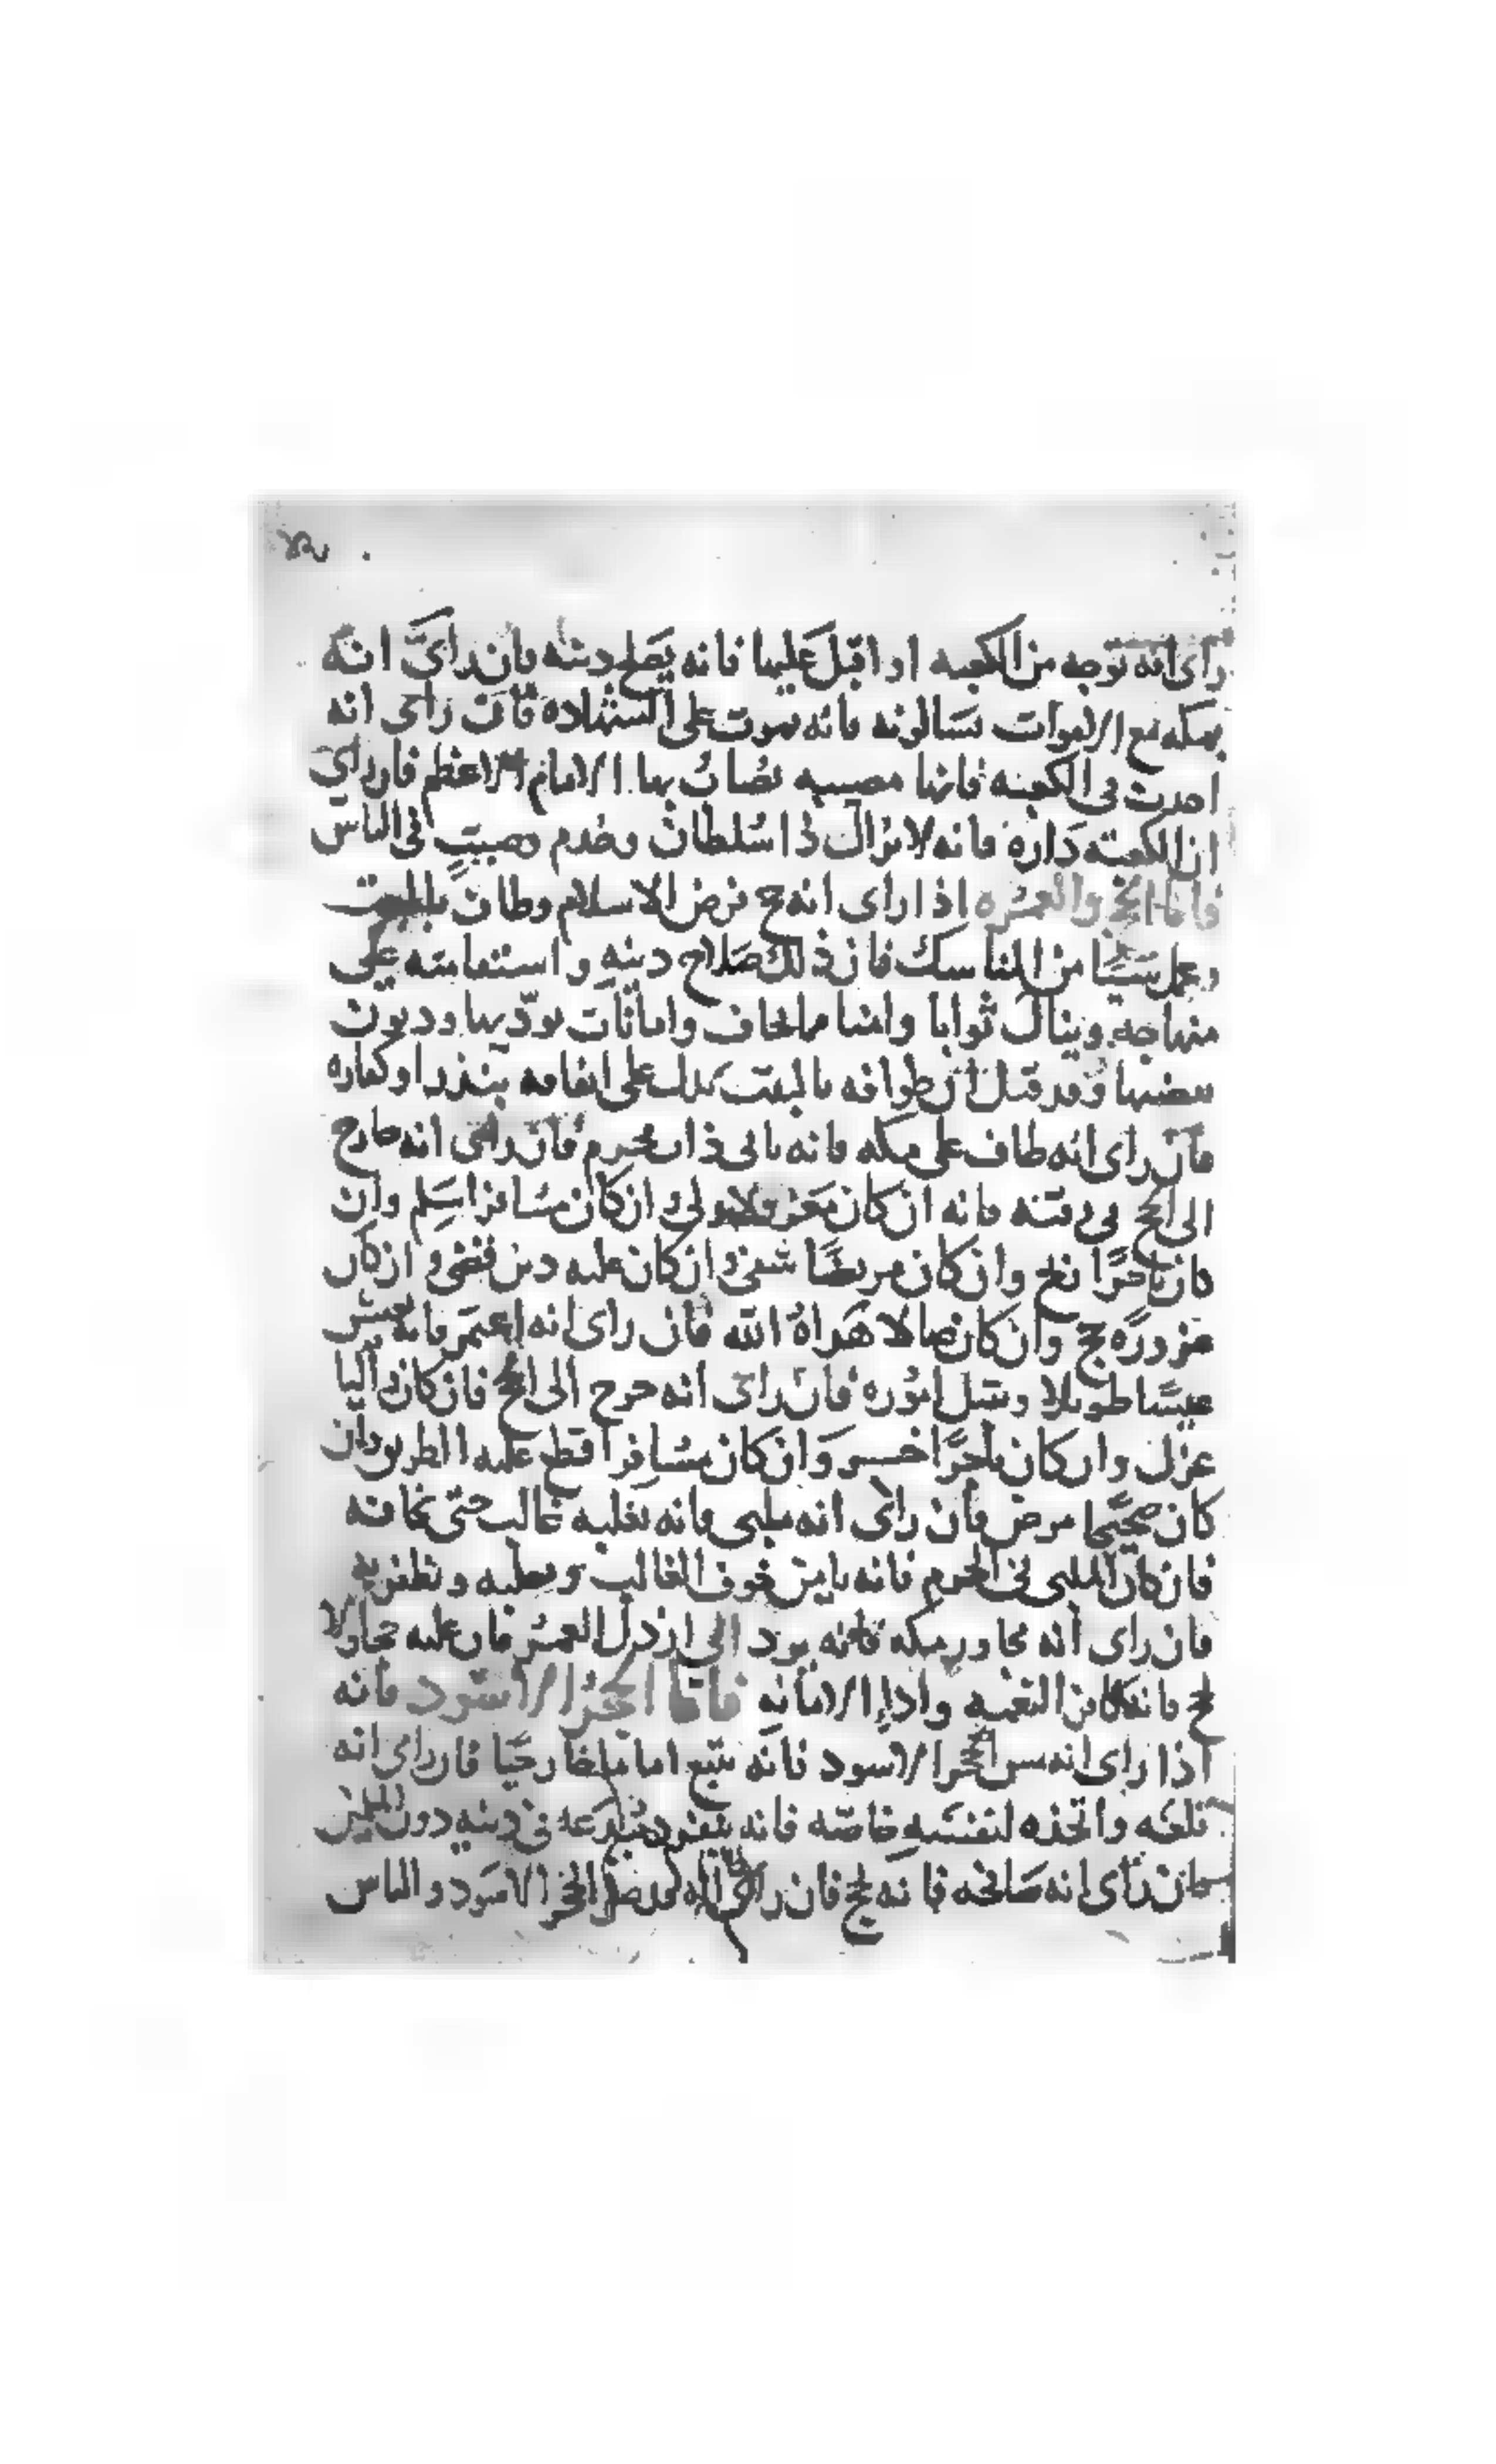 راى انه توجه من الكعبه او اقبل عليها فانه يصلح دينه فان راى انه
بمكه مع الاموات يسالونه فانه يموت على الشهاده فان راى انه
احدث فى الكعبه فانها مصيبه تصاب بها الامام الاعظم فان راى
ان الكعبه داره فانه لا يزال ذا سلطان وخدم وصيت فى الناس
فاما الحج والعمره اذا راى انه حج فرض الاسلام وطاف بالبيت
وعمل شيا من المناسك فان ذلك صلاح دينه واستقامته على
منهاجه وينال ثوابا وامنا مما يخاف وامانات يوديها وديون
يقضيها وقد قيل ان طوافه بالبيت يدل على انفاقه بنذر او كفاره
فان راى انه طاف على مكه فانه ياتى ذات محرم فان راى انه خارج
الى الحج فى وقته فانه ان كان معزولا ولى وان كان مسافرا سلم وان
كان تاجرا ربح وان كان مريضا شفى وان كان عليه دين قضى وان كان
صروره حج وان كان ضالا هداه الله فان راى انه اعتمر فانه يعيش
عيشا طويلا وتقبل اموره فان راى انه خرج الى الحج فان كان واليا
عزل وان كان تاجرا خسر وان كان مسافرا قطع عليه الطريق وان
كان صحيحا مرض فان راى انه يلبى فانه يغلبه غالب حتى يخافه
فان كان الملبى فى الحرم فانه يامن خوف الغالب ويطلبه ويظفر به
فان راى انه مجاور بمكه فانه يرد الى ارذل العمر فان عليه محاولا
لحج فانه من النعمه واداء الامانه فاما الحجر الاسود فانه
اذا راى انه مس الحجر الاسود فانه يتبع اماما خارجيا فان راى انه
قلعه واتخذه لنفسه خاصه فانه ينفرد ببدعه فى دينه دون المسلمين
فان راى انه صافحه فانه يحج فان راى انه الحجر الاسود والناس